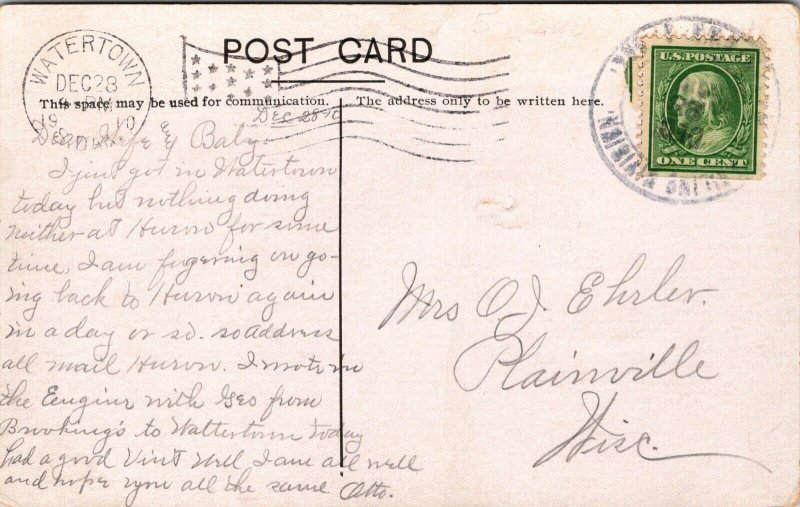 WATERTOWN
DEC 28
PM
19 10
S. DAK.
POST CARD
This space may be used for communication.
The address only to be written here.
U.S. POSTAGE
ONE CENT
Dec 28-10
Dear Wife & Baby-
I just got in Watertown
today but nothing doing
neither at Huron for some
time, I am figering on go-
ing back to Huron again
in a day or so. so address
all mail Huron. I
the Engine with Geo from
Brooking's to Wattertown today
had a good Visit Well I am all well
and hope you all the same Otto.
Mrs O. J. Ehrler.
Plainville
Wisc.